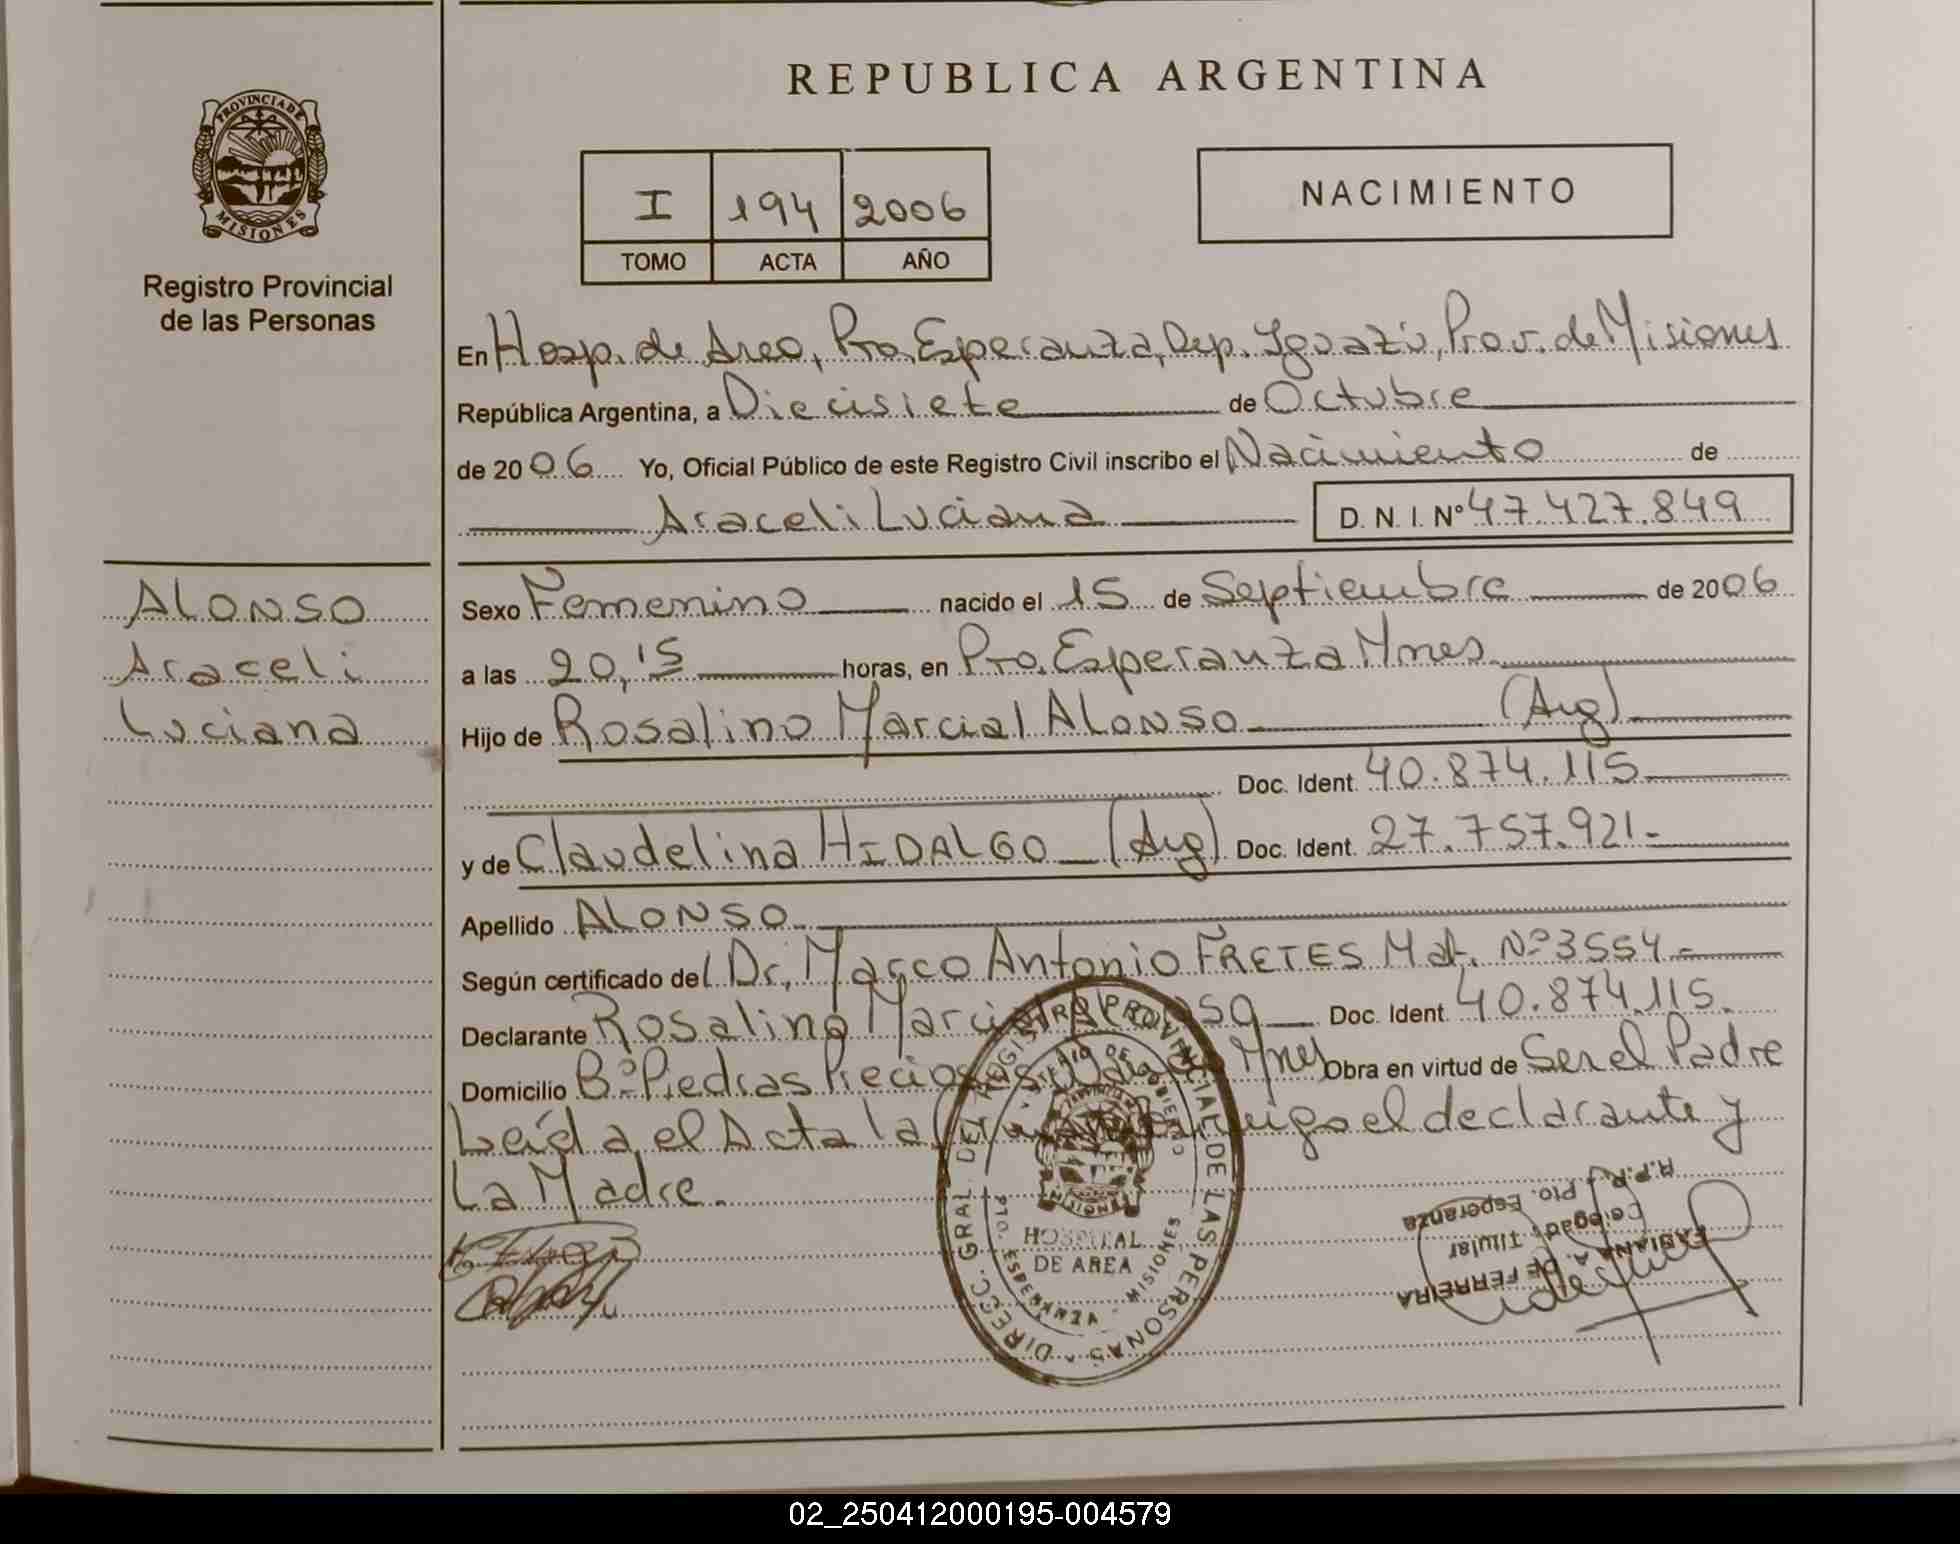 REPUBLICA ARGENTINA
PROVINCIA DE
MISIONES
Registro Provincial
de las Personas
I 194 2006
TOMO ACTA AÑO
NACIMIENTO
En Hosp. de Area, Pto. Esperanza, Dep. Iguazú, Prov. de Misiones
República Argentina, a Diecisiete de Octubre
de 2006 Yo, Oficial Público de este Registro Civil inscribo el Nacimiento de
Araceli Luciana D. N. I. Nº 47.427.849
ALONSO
Araceli
Luciana
Sexo Femenino nacido el 15 de Septiembre de 2006
a las 20,15 horas, en Pto. Esperanza Mnes
Hijo de Rosalino Marcial ALONSO (Arg)
Doc. Ident. 40.874.115
y de Claudelina HIDALGO (Arg) Doc. Ident. 27.757.921.-
Apellido ALONSO
Según certificado del Dr. Marco Antonio FRETES Mat. Nº 3554.-
Declarante Rosalino Marcial Doc. Ident. 40.874.115.
Domicilio Bº Piedras Preciosas Mnes Obra en virtud de Ser el Padre
Leída el Acta la el declarante y
La Madre.
DIRECC. GRAL. DEL REGISTRO PROVINCIAL DE LAS PERSONAS
HOSPITAL
DE AREA
PTO. ESPERANZA - MISIONES
FABIANA A. DE FERREIRA
Delegada Titular
R.P.P. Pto. Esperanza
02_250412000195-004579